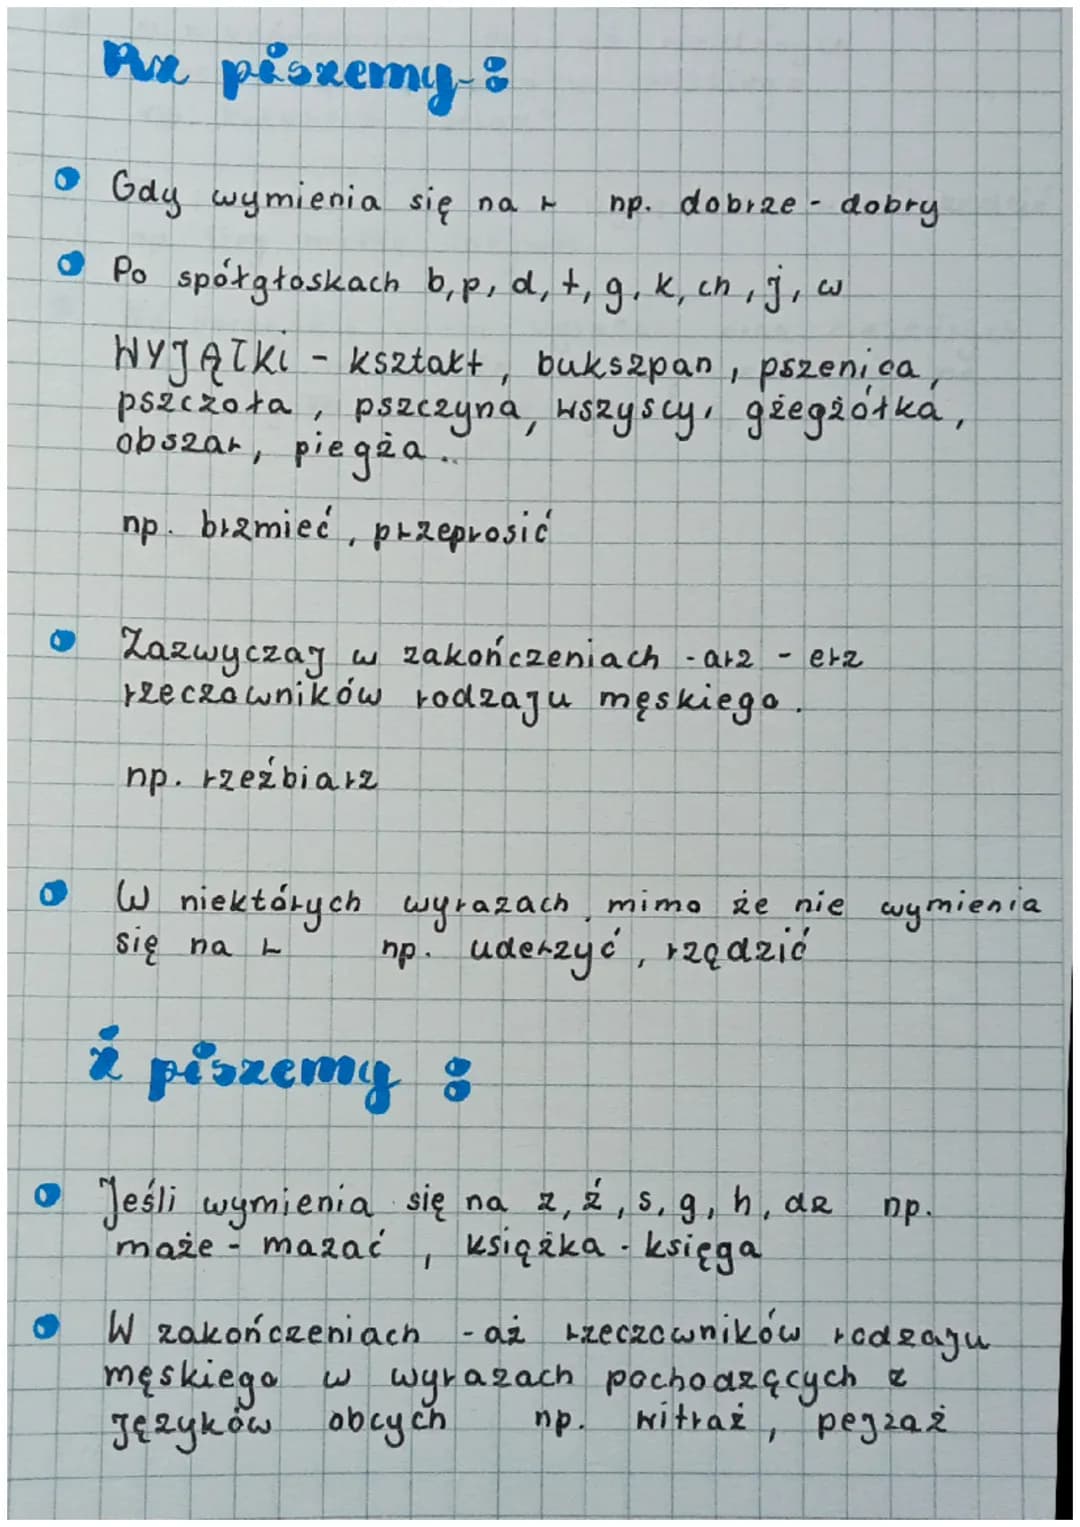 Rz piszemy:
Gdy wymienia się na r np. dobrze - dobry
Po spółgłoskach b, p, d, t, g, k, ch, j, w
WYJĄTKi - kształt, bukszpan, pszenica,
pszczoła, pszczyna, wszyscy, gżegżółka,
obszar, piegża..
np. brzmieć, przeprosić
Zazwyczaj w zakończeniach -arz -erz
rzeczowników rodzaju męskiego.
np. rzeźbiarz
W niektórych wyrazach, mimo że nie wymienia
się na r np. uderzyć, rządzić
ż piszemy:
Jeśli wymienia się na z, ź, s, g, h, dz np.
maże - mazać, książka - księga
W zakończeniach -aż rzeczowników rodzaju
męskiego w wyrazach pochodzących z
języków obcych np. witraż, pejzaż